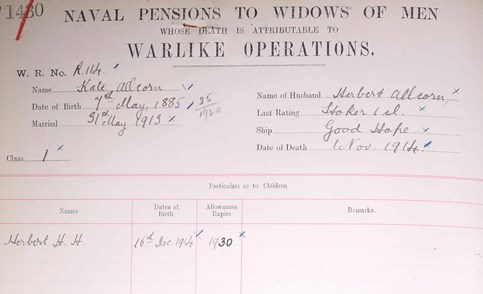 1430
NAVAL PENSIONS TO WIDOWS OF MEN
WHOSE DEATH IS ATTRIBUTABLE TO
WARLIKE OPERATIONS.
W. R. No. R.114.
Name Kate, Allcorn
Date of Birth 7th May, 1885 35/1920
Married 31st May 1913
Class 1
Name of Husband Herbert Allcorn,
Last Rating Stoker 1 cl.
Ship Good Hope
Date of Death 1 Nov. 1914.
Particulars as to Children
Names Dates of Birth Allowances Expire Remarks.
Herbert H. H. 16th Dec 1914 1930